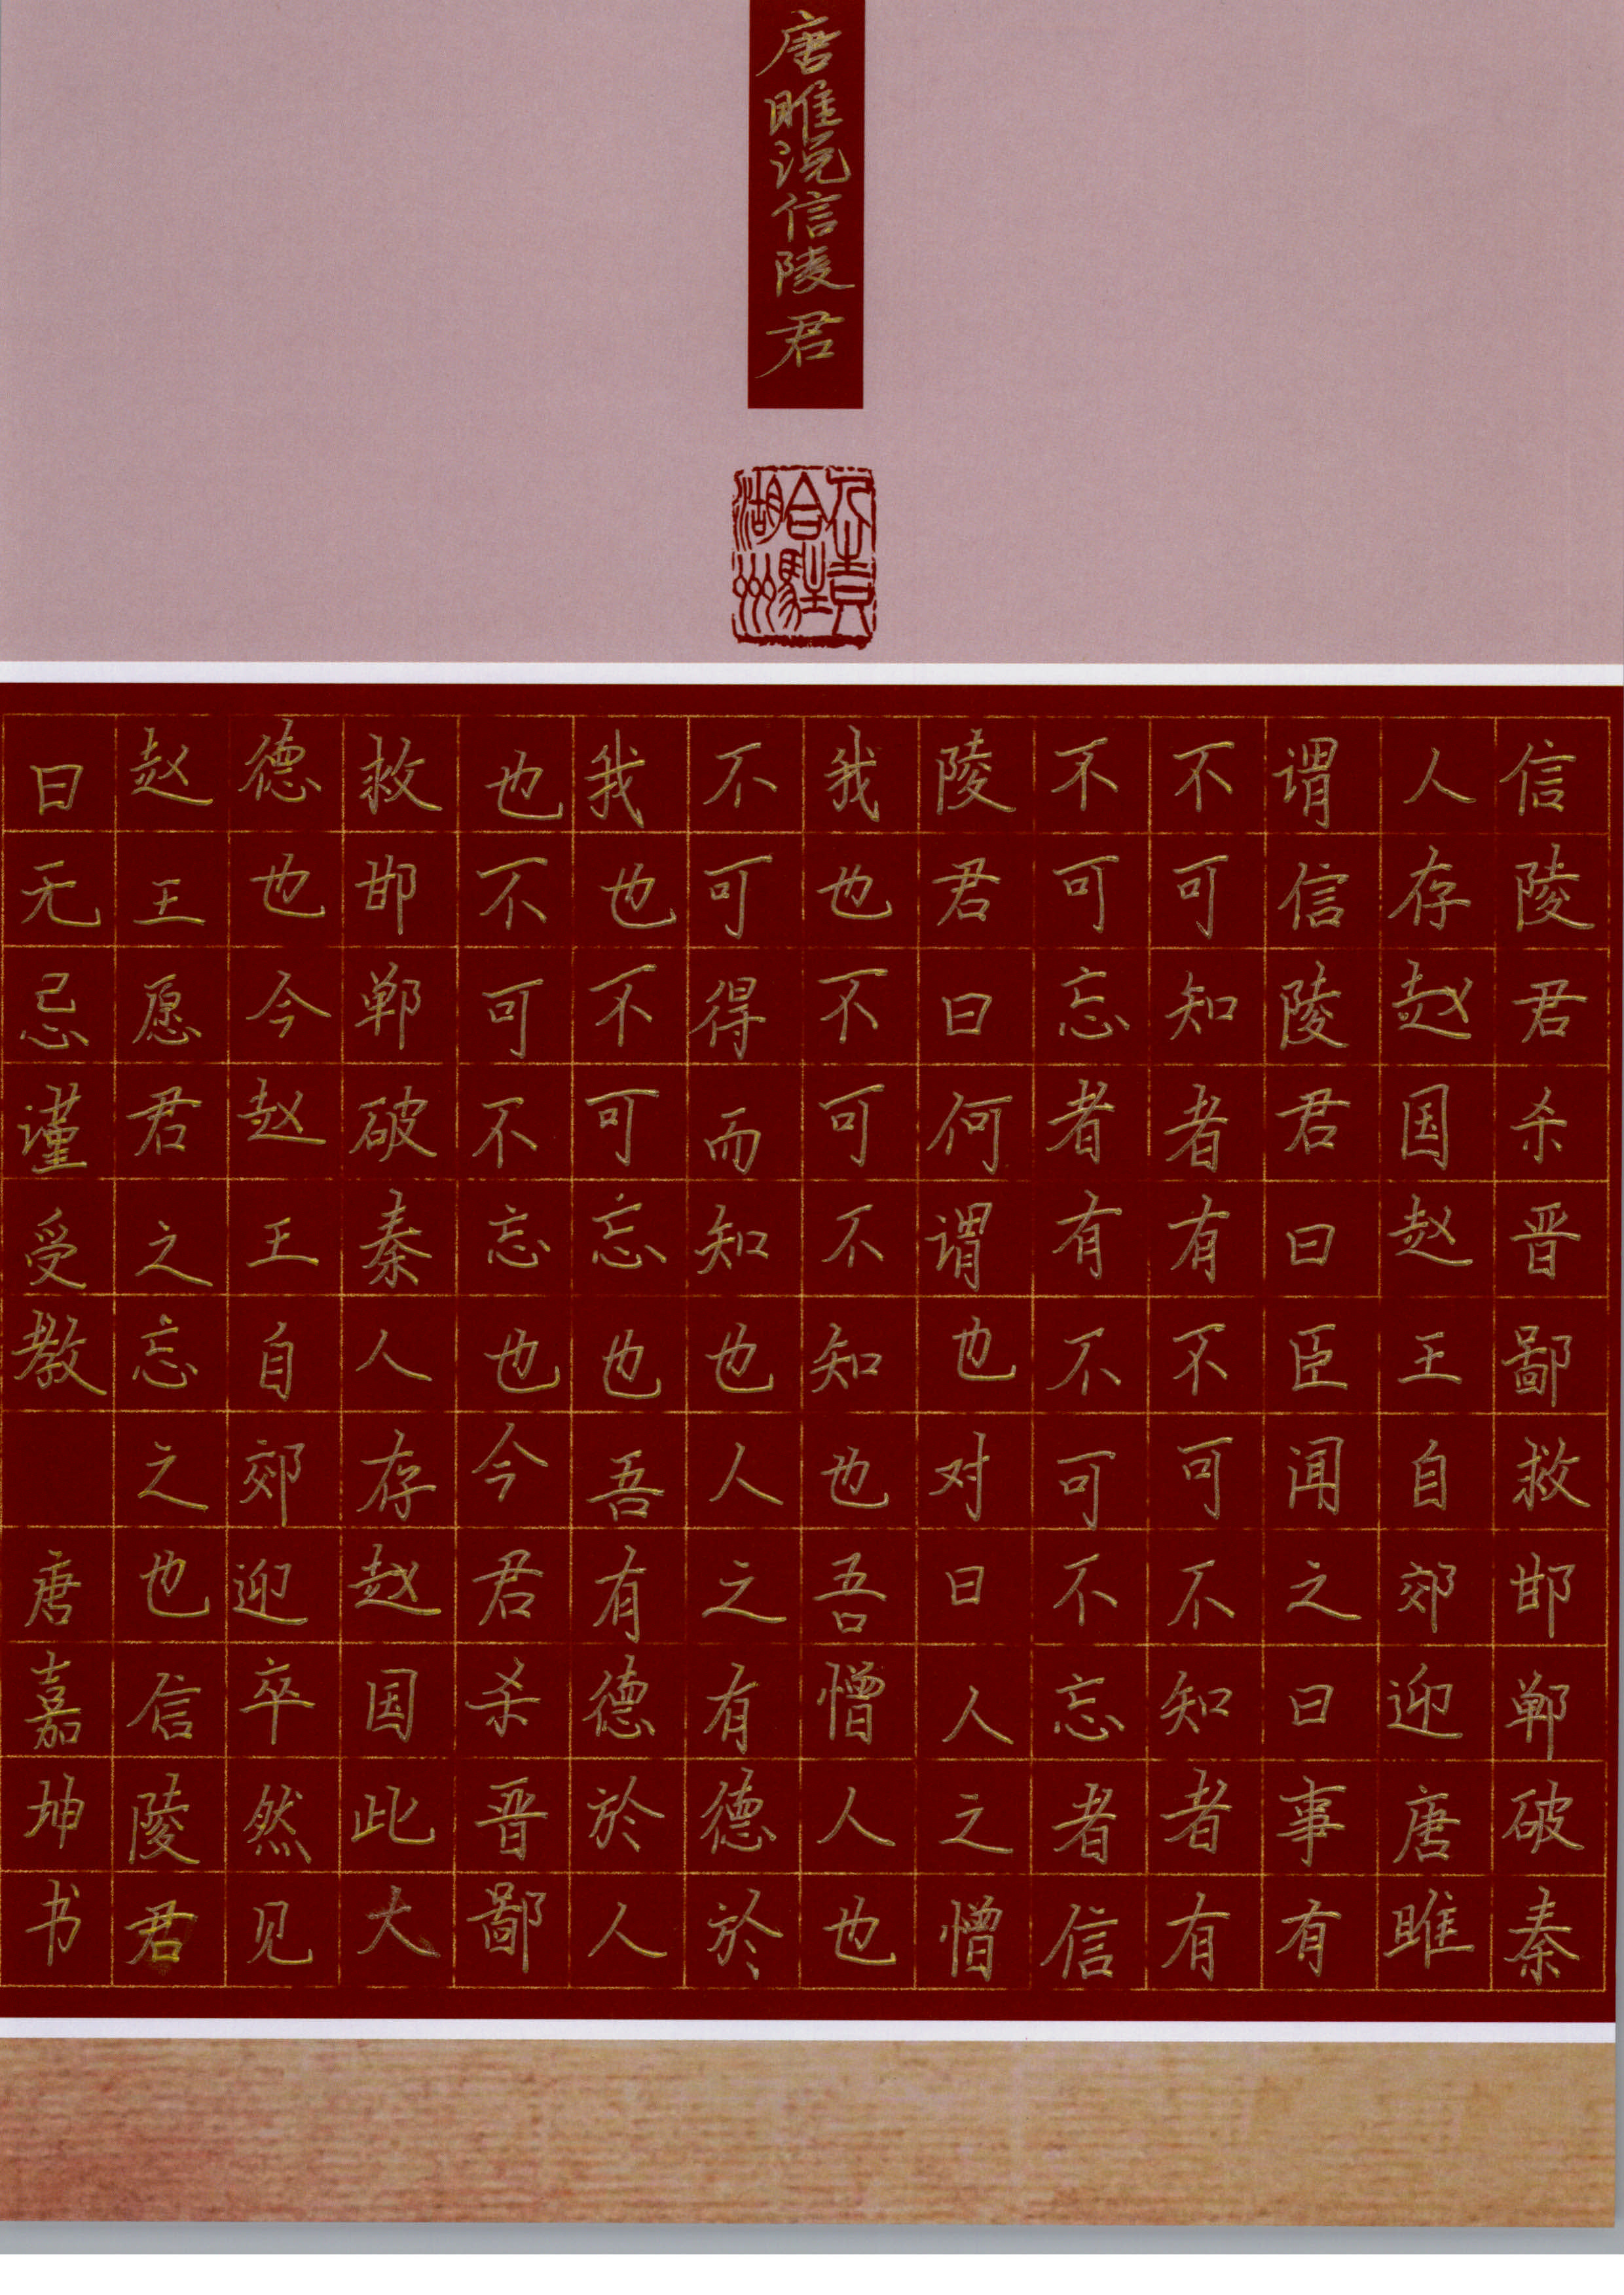 唐雎说信陵君
信陵君杀晋鄙救邯郸破秦
人存赵国赵王自郊迎唐雎
谓信陵君曰臣闻之曰事有
不可知者有不可不知者有
不可忘者有不可不忘者信
陵君曰何谓也对曰人之憎
我也不可不知也吾憎人也
不可得而知也人之有德於
我也不可忘也吾有德於人
也不可不忘也今君杀晋鄙
救邯郸破秦人存赵国此大
德也今赵王自郊迎卒然见
赵王愿君之忘之也信陵君
曰无忌谨受教 唐嘉坤书